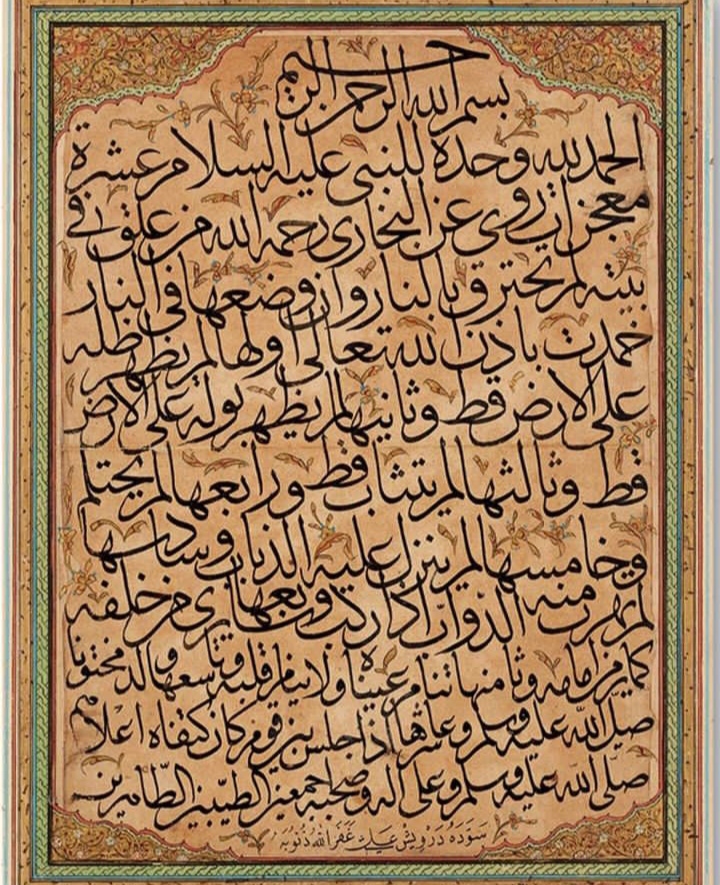 بسم الله الرحمن الرحيم
الحمد لله وحده للنبي عليه السلام عشرة
معجزات روى عن البخارى رحمه الله من علق فى
بيته لم يحترق بالنار وان وضعها فى النار
خمدت باذن الله تعالى اولها لم يظهر ظله
على الارض قط وثانيها لم يظهر بوله على الارض
قط وثالثها لم يتثاب قط ورابعها لم يحتلم
وخامسها لم ينزل عليه الذباب وسادسها
لم يهرب منه الدواب اذا ركب وسابعها يرى من خلفه
كما يرى من امامه وثامنها تنام عيناه ولا ينام قلبه وتاسعها ولد مختونا
صلى الله عليه وسلم وعاشرها اذا جلس بين قوم كان كتفاه اعلا منهم
صلى الله عليه وسلم وعلى اله وصحبه اجمعين الطيبين الطاهرين
سَوَّدَهُ دَرْوِيشْ عَلِي غَفَرَ اللّٰه ذُنُوبَهُ